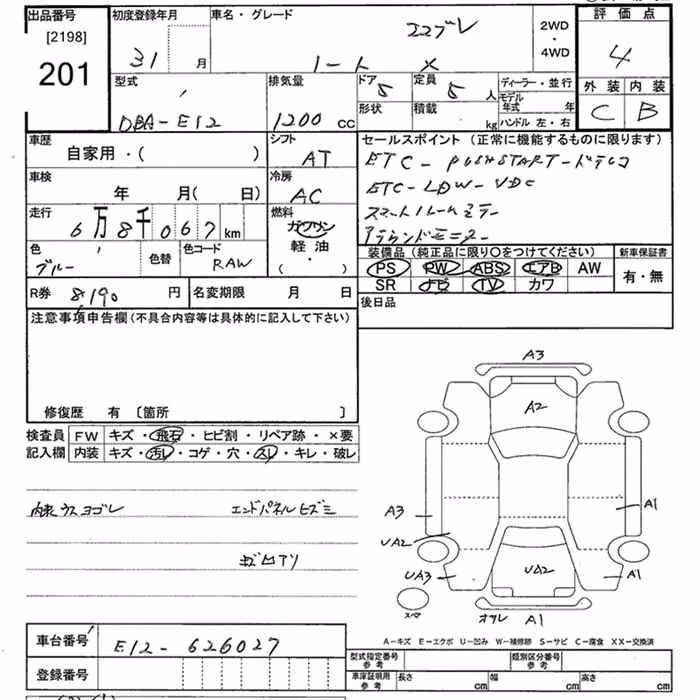 出品番号 初度登録年月 車名・グレード 2WD・4WD 評価点
[2198] 31 月 ユコブレ 4
201 ノート X 外装 内装
C B
型式 排気量 ドア 定員 ディーラー・並行
DBA-E12 1200 cc 5 5 人 モデル年式 年
形状 積載 kg ハンドル 左・右
車歴 シフト セールスポイント (正常に機能するものに限ります)
自家用・( ) AT ETC - PUSHSTART - ドラレコ
車検 冷房 ETC - LDW - VDC
年 月( 日) AC スマートルームミラー
走行 燃料 アラウンドモニター
6万8千067 km ガソリン
軽油
・( )
色 色替 色コード
ブルー RAW
装備品 (純正品に限り〇をつけてください) 新車保証書
PS PW ABS エアB AW 有・無
SR ナビ TV カワ
R券 8190 円 名変期限 月 日 後日品
注意事項申告欄 (不具合内容等は具体的に記入して下さい)
修復歴 有 〔箇所 〕
検査員 FW キズ・飛石・ヒビ割・リペア跡・×要
記入欄 内装 キズ・汚レ・コゲ・穴・スレ・キレ・破レ
内装ウスヨゴレ エンドパネルヒズミ
キズ凹アリ
A3
A2
A3 A1
UA2
UA3 UA2 A1
スペア オサレ A1
A−キズ E−エクボ U−凹み W−補修跡 S−サビ C−腐食 XX−交換済
車台番号 E12-626027
登録番号
型式指定番号 参考 類別区分番号 参考
車庫証明用 参考 長さ cm 幅 cm 高さ cm